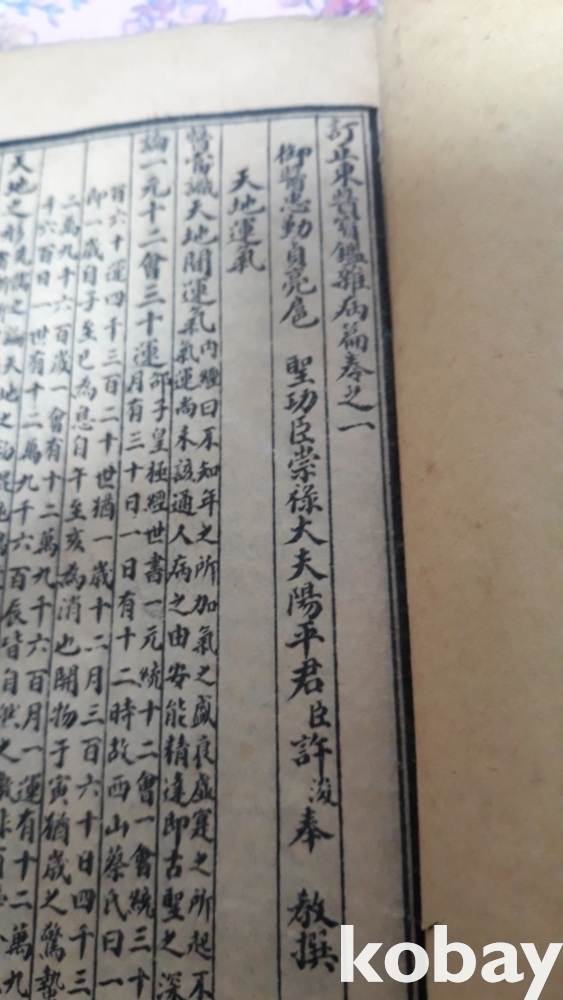 訂正東醫寶鑑雜病篇卷之一
御醫忠勤貞亮扈 聖功臣崇祿大夫陽平君臣許浚奉 教撰
天地運氣
醫當識天地間運氣
內經曰不知年之所加氣之盛衰虛實之所起不
氣運尚未該通人病之由安能精達即古聖之深
論一元十二會三十運
邵子皇極經世書一元統十二會一會統三十
月有三十日一日有十二時故西山蔡氏曰一
百六十運四千三百二十世猶一歲十二月三百六十日四千三
即一歲自子至巳為息自午至亥為消也開物于寅猶歲之驚蟄
二萬九千六百歲一會有十二萬九千六百月一運有十二萬九
千六百日一世有十二萬九千六百辰皆自然之數非有
天地之形
kobay